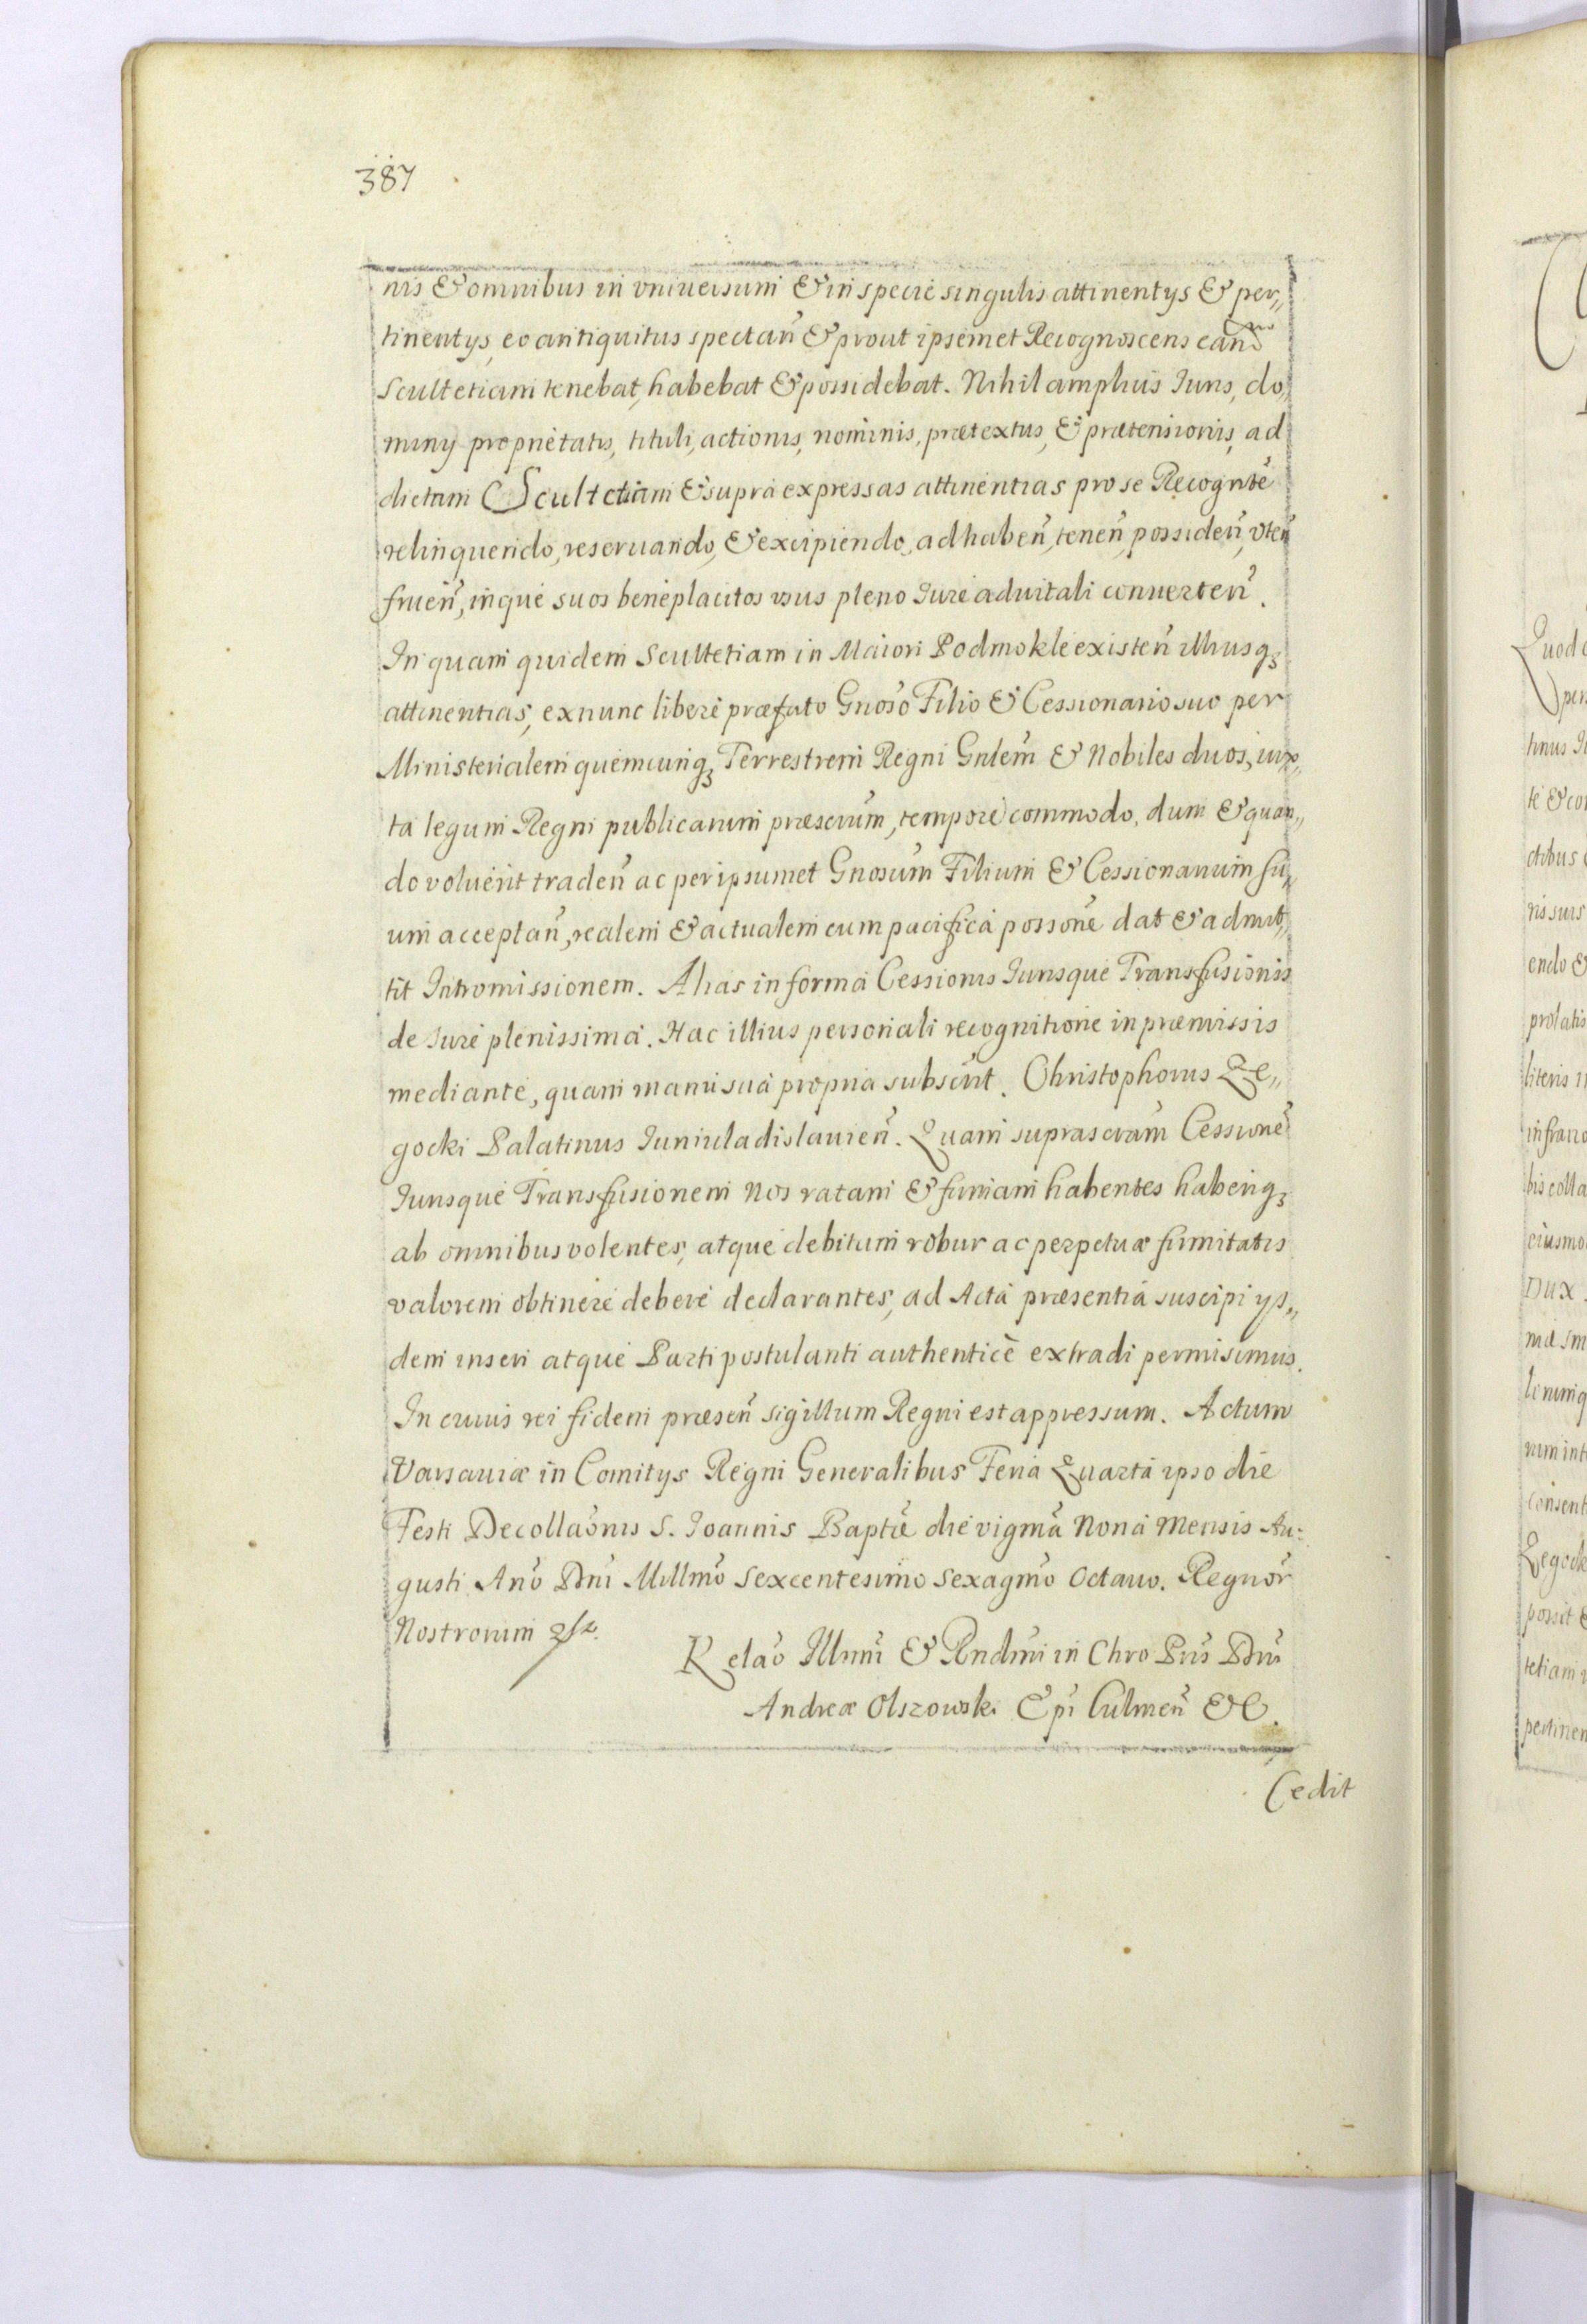 387
nis & omnibus in vniuersum & in specie singulis attinentys & per„
tinentys, eo antiquitus spectań & prout ipsemet Recognoscens eand̃
Scultetiam tenebat, habebat & possidebat. Nihil amplius Iuris, do„
miny proprietatis, tituli, actionis, nominis, prætextus, & prætensionis, ad
dictam Scultetiam & supra expressas attinentias pro se Recognĩtẽ
relinquendo, reseruando, & excipiendo, ad habeñ, teneñ, possideñ, vteñ
frueñ, inque suos beneplacitos vsus pleno Iure aduitali conuerteñ.
In quam quidem Scultetiam in Maiori Podmokle existeñ illiusq₃
attinentias, ex nunc libere præfato Gnoso Filio & Cessionario suo per
Ministerialem quemcunq₃ Terrestrem Regni Gnlem & Nobiles duos, iux„
ta legum Regni publicarum præscrum, tempore commodo, dum & quan„
do voluerit tradeñ ac per ipsumet Gnosum Filium & Cessionarium su„
um acceptañ, realem & actualem cum pacifica possone dat & admit„
tit Intromissionem. Alias in forma Cessionis Iurisque Transfusionis
de Iure plenissima. Hac illius personali recognitione in præmissis
mediante, quam manu sua propria subscrit. Christophorus Ze„
gocki Palatinus Iuniuladislauieñ. Quam suprascram Cessionẽ
Iurisque Transfusionem Nos ratam & firmam habentes haberiq₃
ab omnibus volentes, atque debitum robur ac perpetuæ firmitatis
valorem obtinere debere declarantes, ad Acta præsentia suscipi ys„
dem inseri atque Parti postulanti authenticè extradi permisimus.
In cuius rei fidem præseñ sigillum Regni est appressum. Actum
Varsauiæ in Comitys Regni Generalibus Feria Quarta ipso die
Festi Decollaonis S. Ioannis Baptæ die vigma Nona Mensis Au:
gusti Ano Dni Millmo Sexcentesimo Sexagmo Octauo. Regnor
Nostrorum
Relao Illmi & Rndmi in Chro Pris Dni
Andreæ Olszowski Epi Culmeñ &c.
Cedit